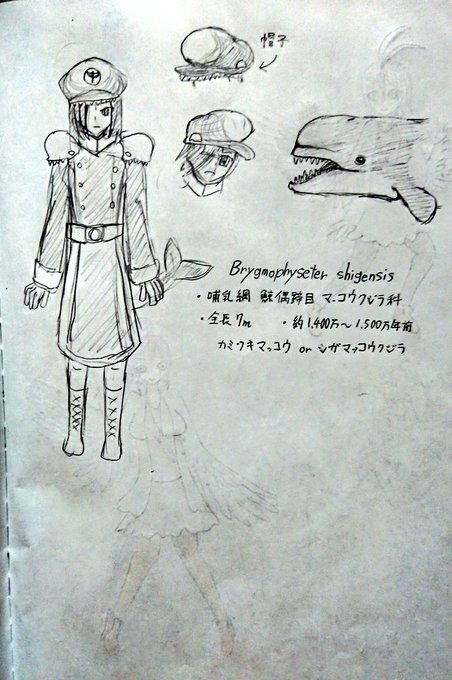 帽子
Brygmophyseter shigensis
・哺乳綱 鯨偶蹄目 マッコウクジラ科
・全長7m ・約1,400万～1,500万年前
カミツキマッコウ or シガマッコウクジラ